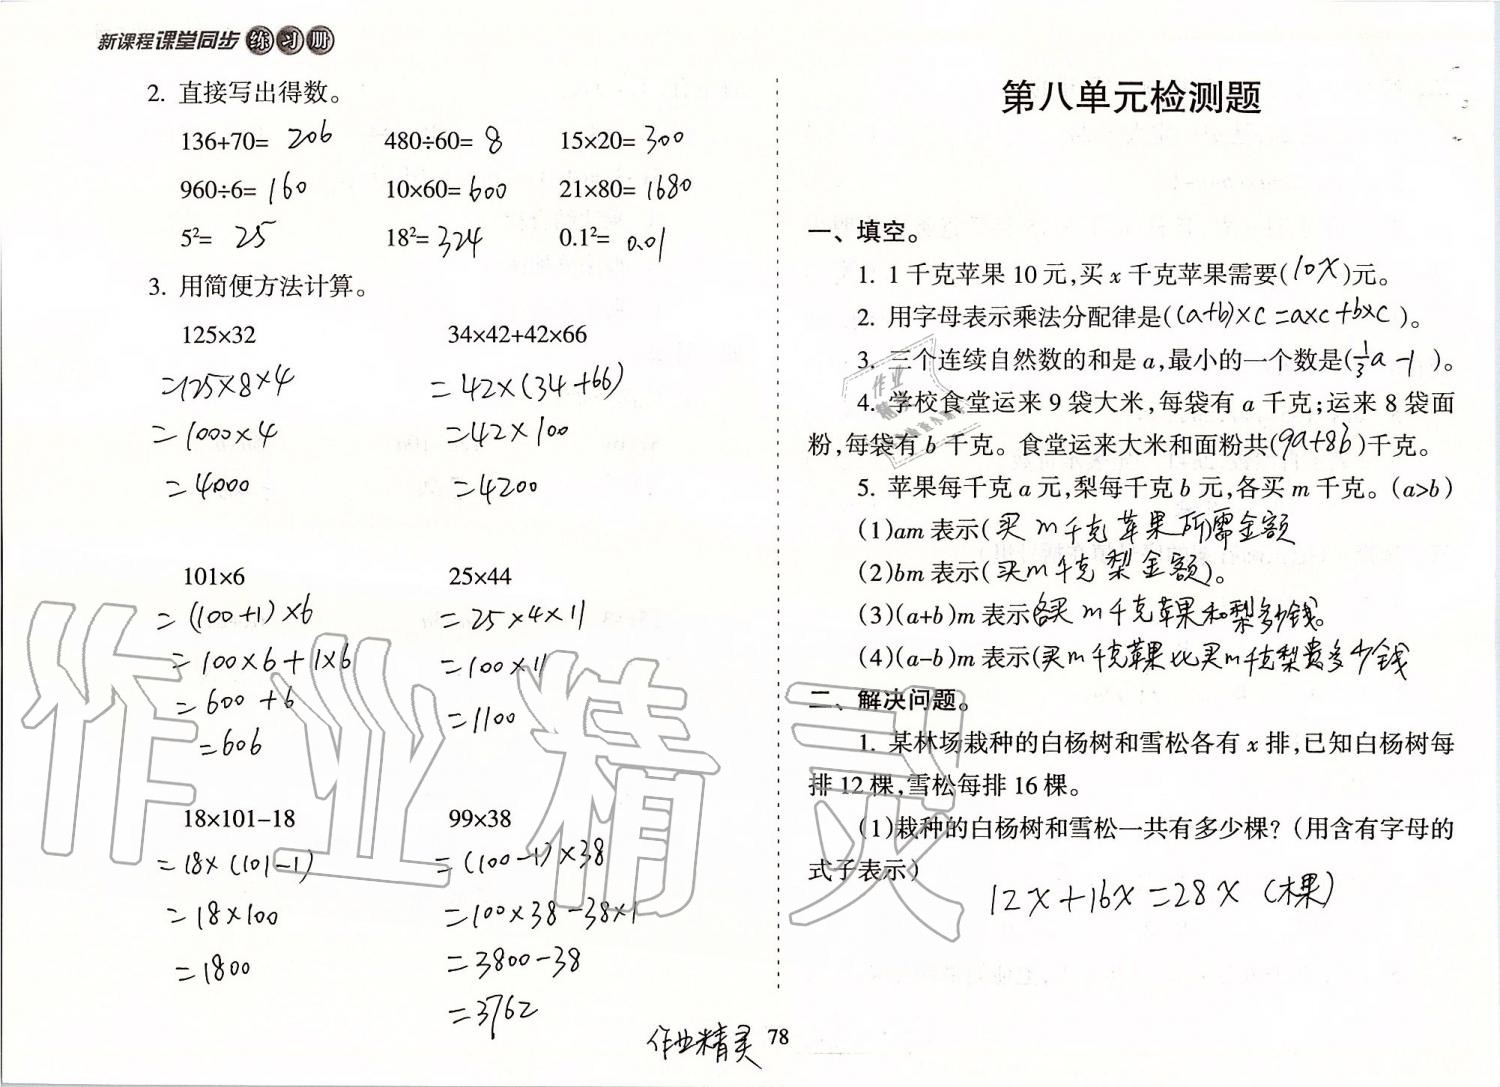 新课程课堂同步练习册
2. 直接写出得数。
136+70= 206 480÷60= 8 15×20= 300
960÷6= 160 10×60= 600 21×80= 1680
5²= 25 18²= 324 0.1²= 0.01
3. 用简便方法计算。
125×32 34×42+42×66
=125×8×4 =42×(34+66)
=1000×4 =42×100
=4000 =4200
101×6 25×44
=(100+1)×6 =25×4×11
=100×6+1×6 =100×11
=600+6 =1100
=606
18×101-18 99×38
=18×(101-1) =(100-1)×38
=18×100 =100×38-38×1
=1800 =3800-38
=3762
第八单元检测题
一、填空。
1. 1千克苹果10元,买x千克苹果需要(10x)元。
2. 用字母表示乘法分配律是((a+b)×c=a×c+b×c)。
3. 三个连续自然数的和是a,最小的一个数是(1/3a-1)。
4. 学校食堂运来9袋大米,每袋有a千克;运来8袋面
粉,每袋有b千克。食堂运来大米和面粉共(9a+8b)千克。
5. 苹果每千克a元,梨每千克b元,各买m千克。(a>b)
(1)am表示(买m千克苹果所需金额
(2)bm表示(买m千克梨金额)。
(3)(a+b)m表示各买m千克苹果和梨多少钱。
(4)(a-b)m表示(买m千克苹果比买m千克梨贵多少钱
二、解决问题。
1. 某林场栽种的白杨树和雪松各有x排,已知白杨树每
排12棵,雪松每排16棵。
(1)栽种的白杨树和雪松一共有多少棵?(用含有字母的
式子表示)
12x+16x=28x(棵)
作业精灵
78
作业精灵